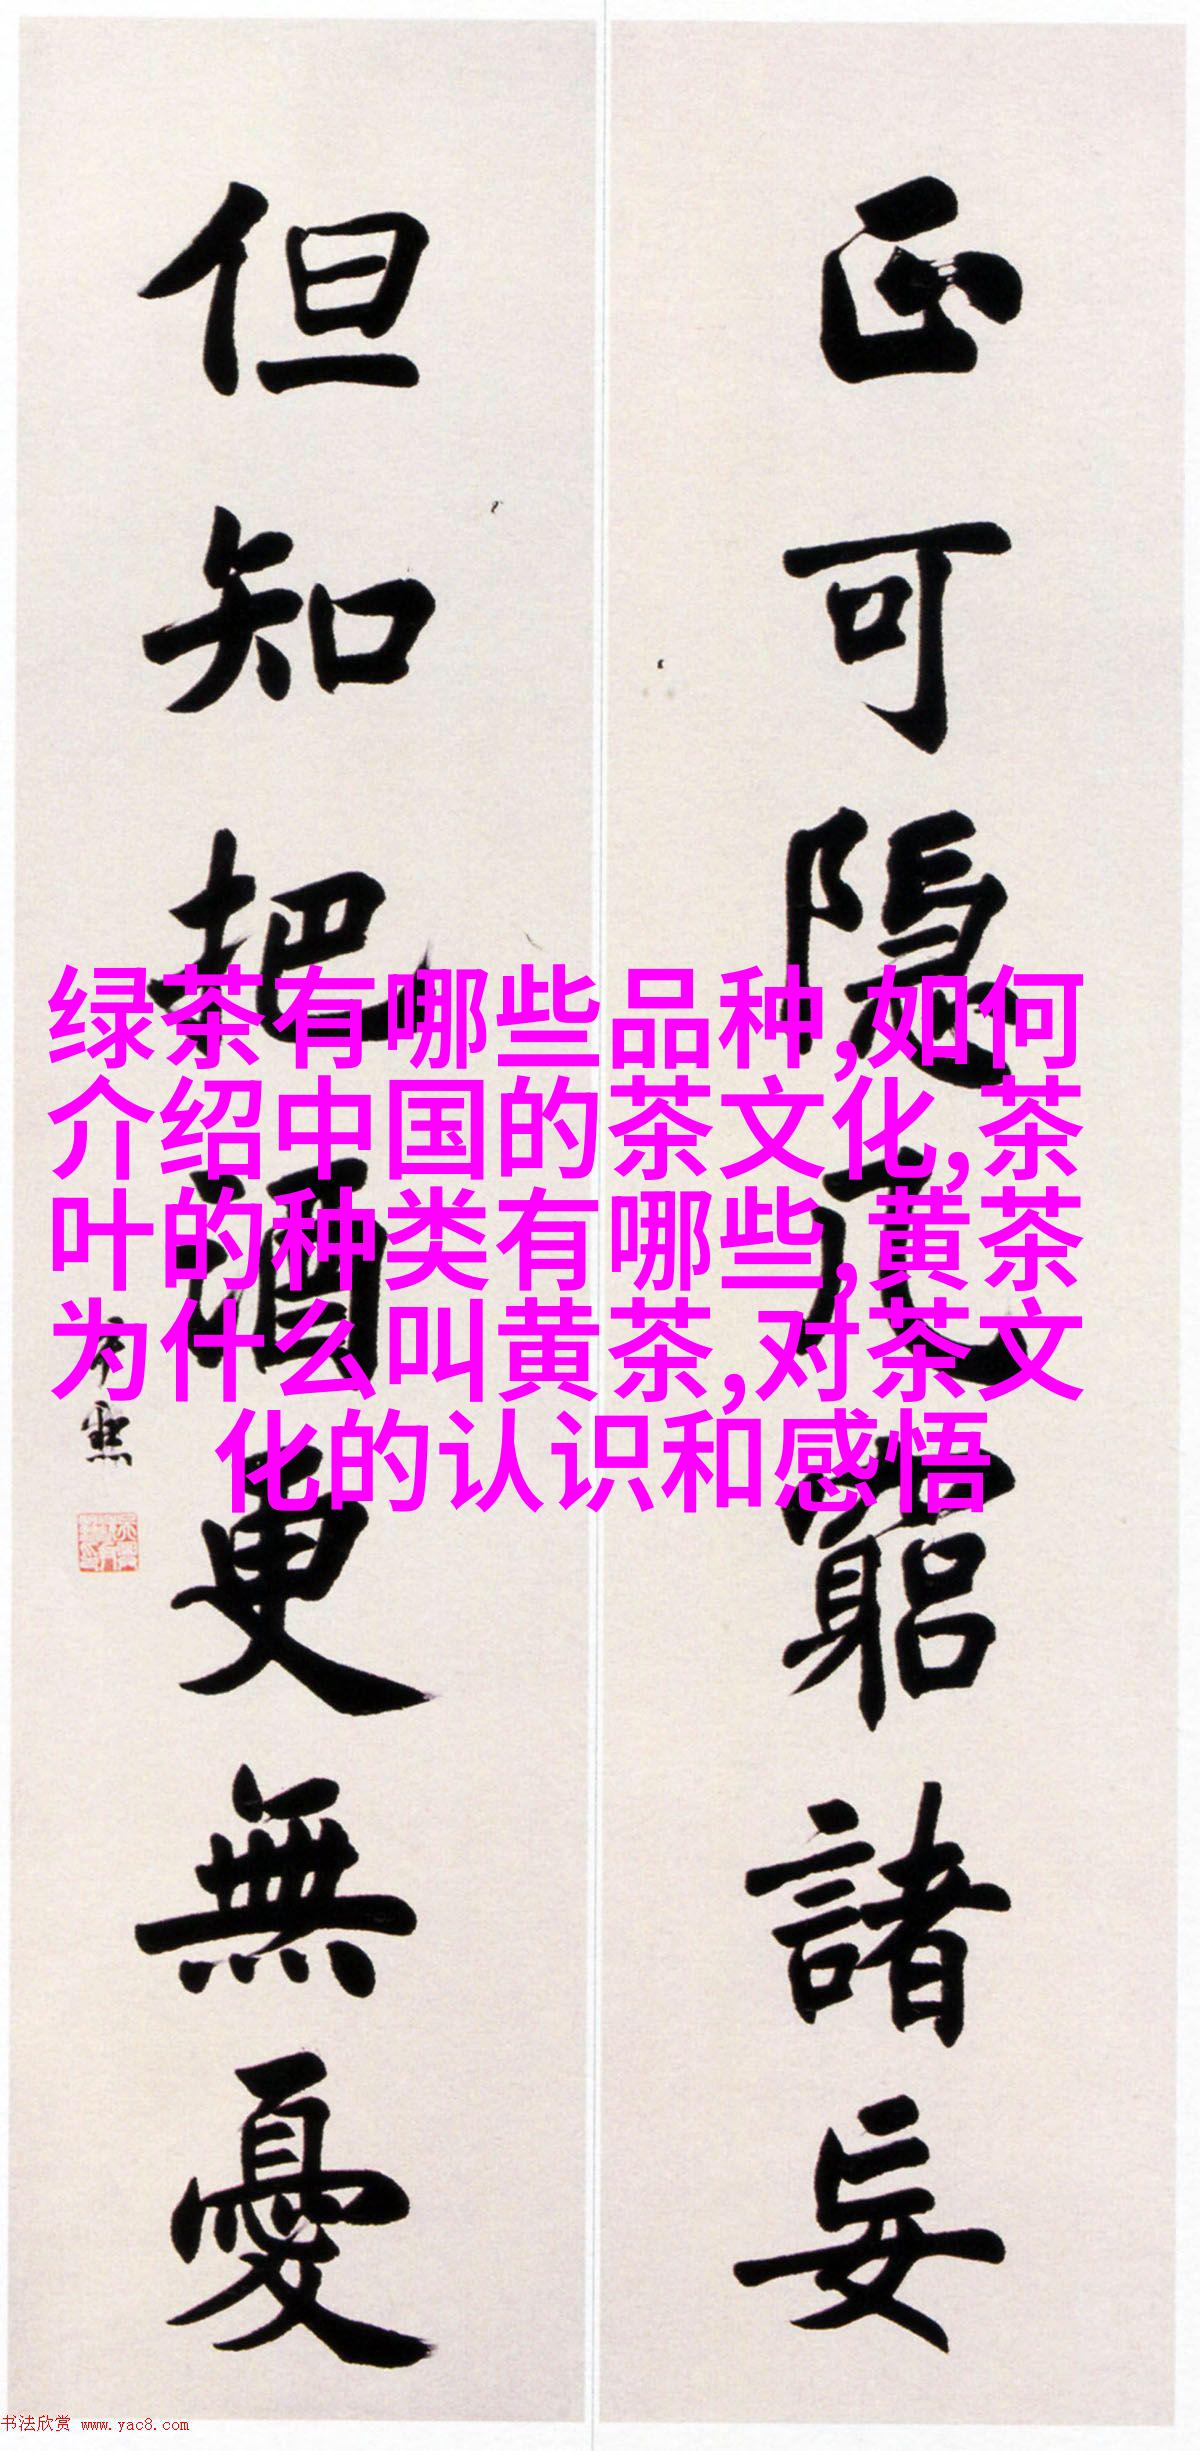 正可隱几窮諸妄
但知把酒更無憂
绿茶有哪些品种,如何
介绍中国的茶文化,茶
叶的种类有哪些,黄茶
为什么叫黄茶,对茶文
化的认识和感悟
书法欣赏 www.yac8.com